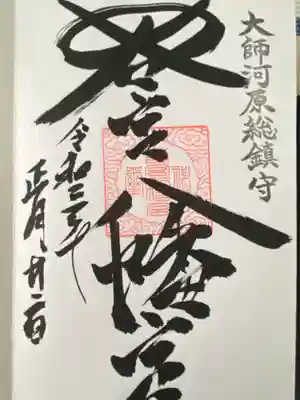 大師河原総鎮守
若宮八幡宮
令和三年
正月廿二日